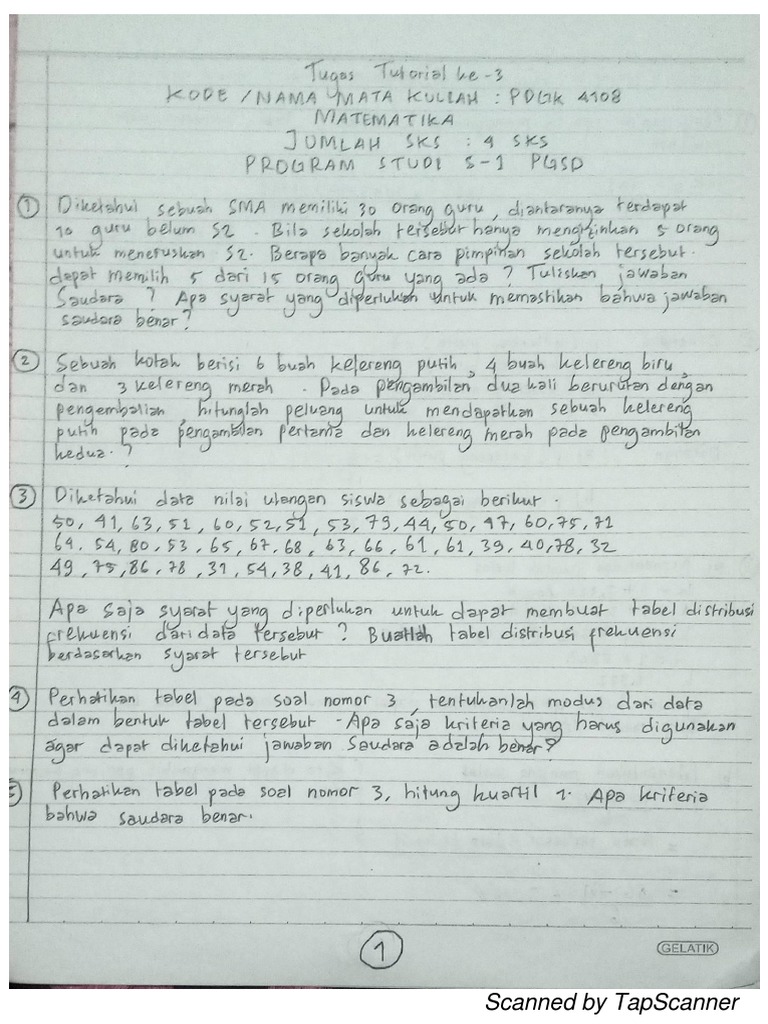 Tugas Tutorial ke-3
KODE/NAMA MATA KULIAH : PDGK 4108
MATEMATIKA
JUMLAH SKS : 4 SKS
PROGRAM STUDI S-1 PGSD
① Diketahui sebuah SMA memiliki 30 orang guru, diantaranya terdapat
10 guru belum S2. Bila sekolah tersebut hanya mengizinkan 5 orang
untuk meneruskan S2. Berapa banyak cara pimpinan sekolah tersebut.
dapat memilih 5 dari 15 orang guru yang ada? Tuliskan jawaban
Saudara? Apa syarat yang diperlukan untuk memastikan bahwa jawaban
saudara benar?
② Sebuah kotak berisi 6 buah kelereng putih, 4 buah kelereng biru,
dan 3 kelereng merah. Pada pengambilan dua kali berurutan dengan
pengembalian, hitunglah peluang untuk mendapatkan sebuah kelereng
putih pada pengambilan pertama dan kelereng merah pada pengambilan
kedua.?
③ Diketahui data nilai ulangan siswa sebagai berikut.
50, 41, 63, 51, 60, 52, 51, 53, 79, 44, 50, 47, 60, 75, 71
64, 54, 80, 53, 65, 67, 68, 63, 66, 61, 61, 39, 40, 78, 32
49, 75, 86, 78, 31, 54, 38, 41, 86, 72.
Apa saja syarat yang diperlukan untuk dapat membuat tabel distribusi
frekuensi dari data tersebut? Buatlah tabel distribusi frekuensi
berdasarkan syarat tersebut
④ Perhatikan tabel pada soal nomor 3, tentukanlah modus dari data
dalam bentuk tabel tersebut - Apa saja kriteria yang harus digunakan
agar dapat diketahui jawaban Saudara adalah benar?
⑤ Perhatikan tabel pada soal nomor 3, hitung kuartil 1. Apa kriteria
bahwa saudara benar.
①
GELATIK
Scanned by TapScanner